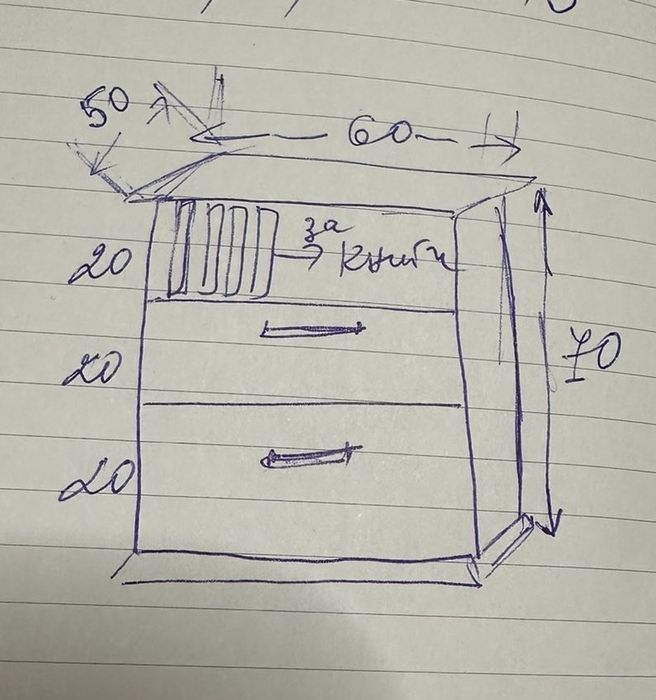 50
60
20
за
книги
20
20
70